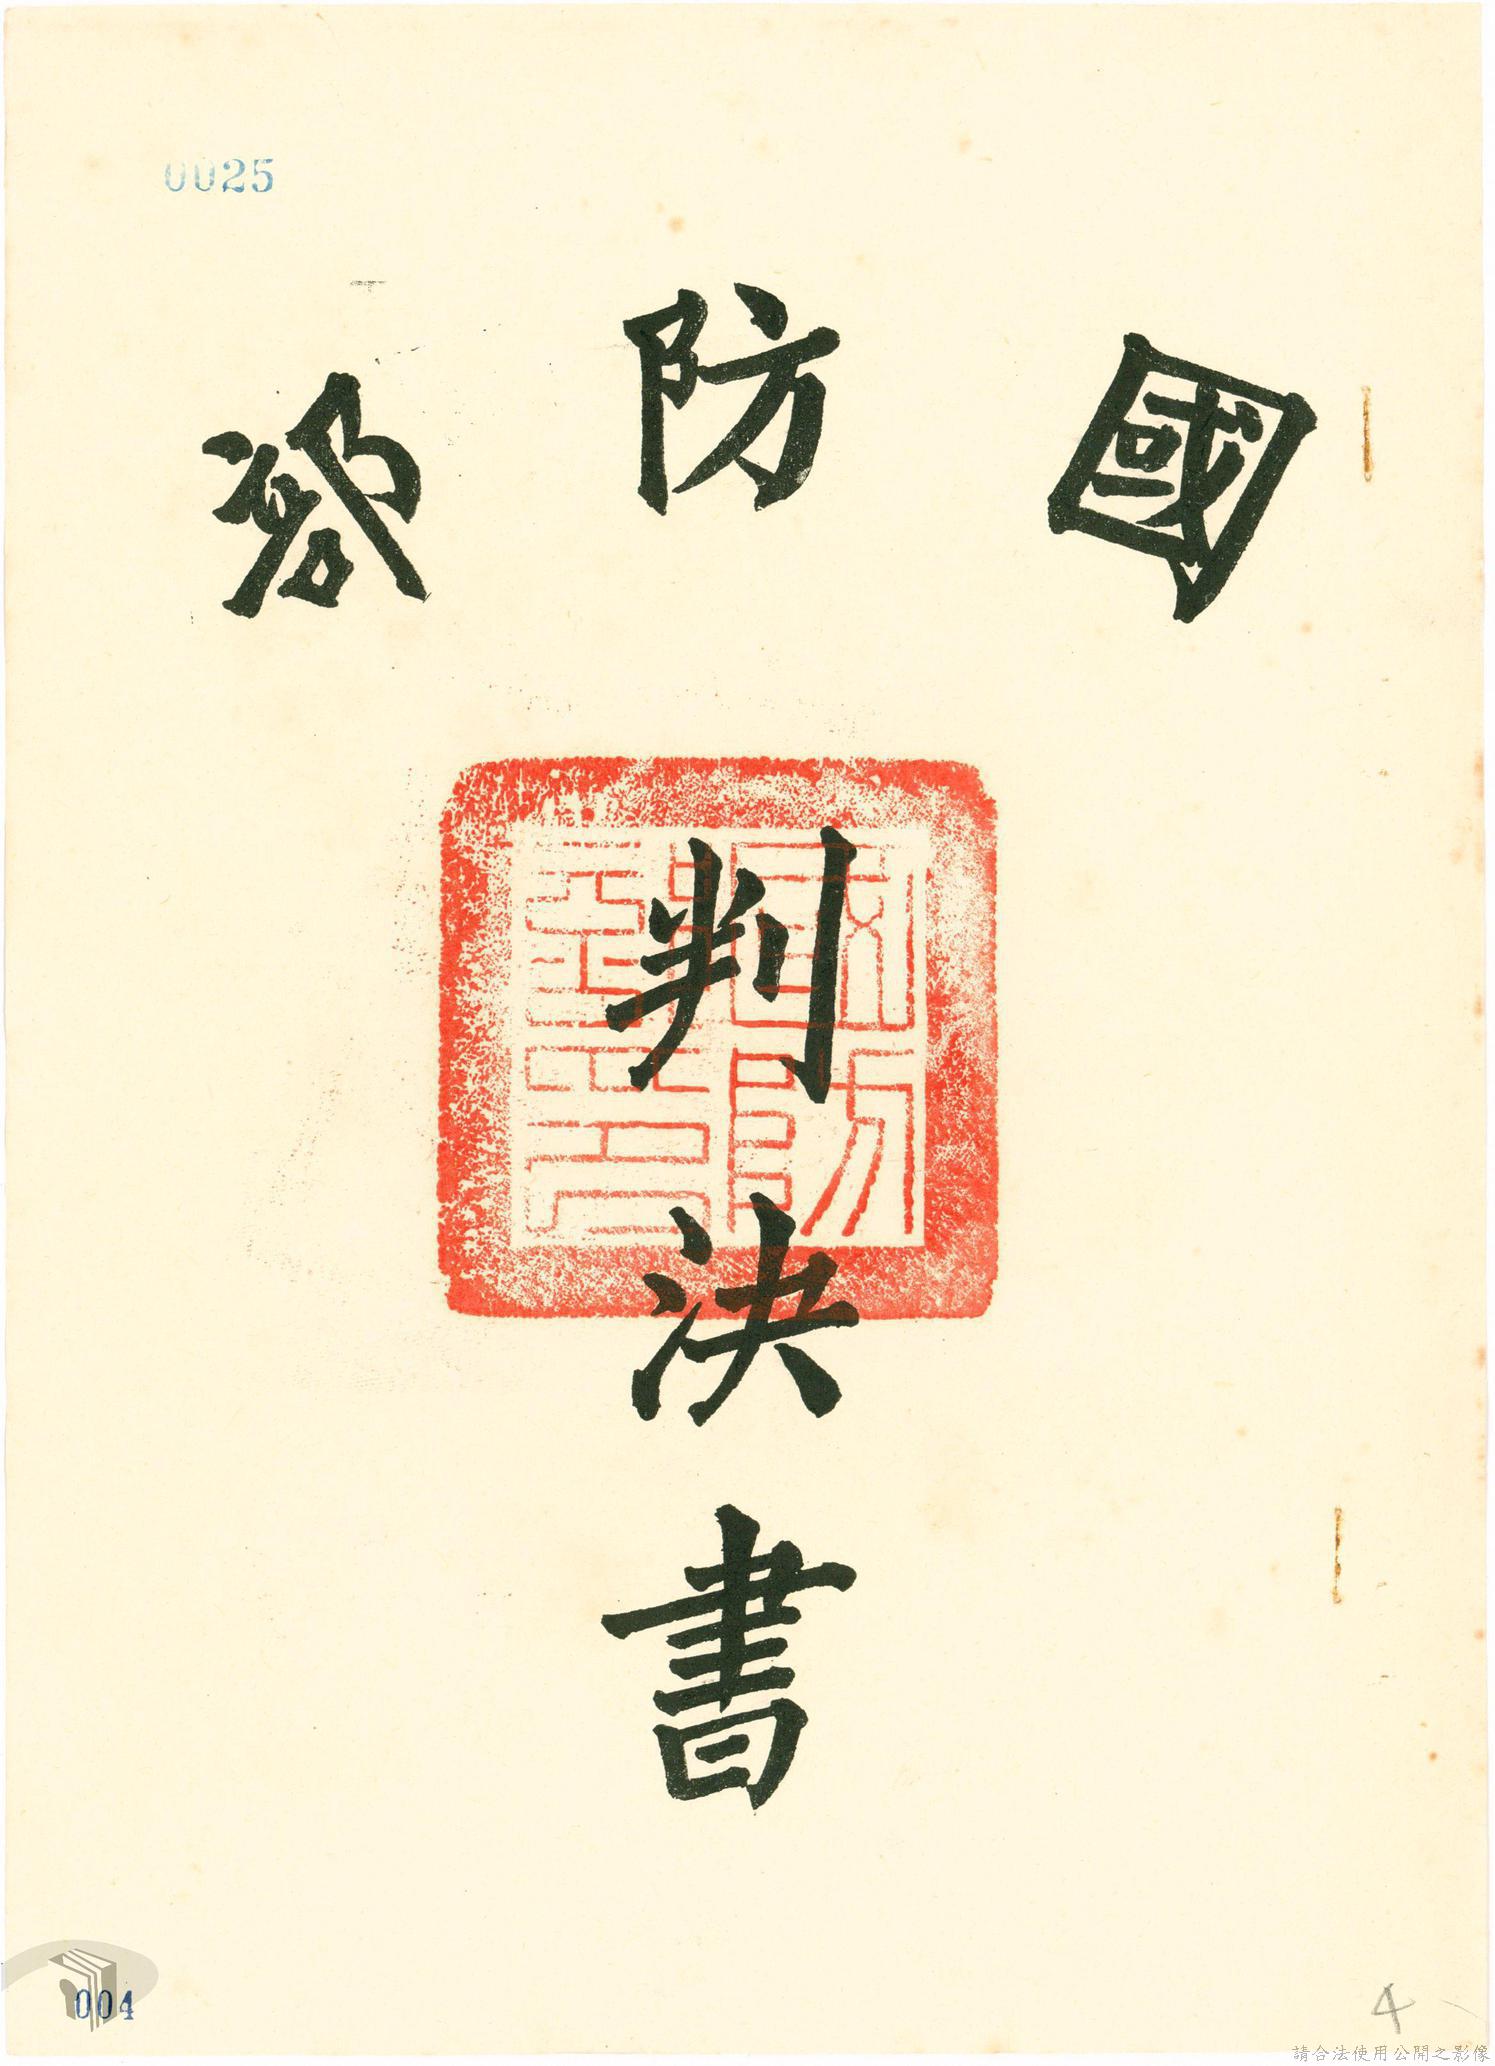 0025
國防部
國防部印
判決書
004
4
請合法使用公開之影像